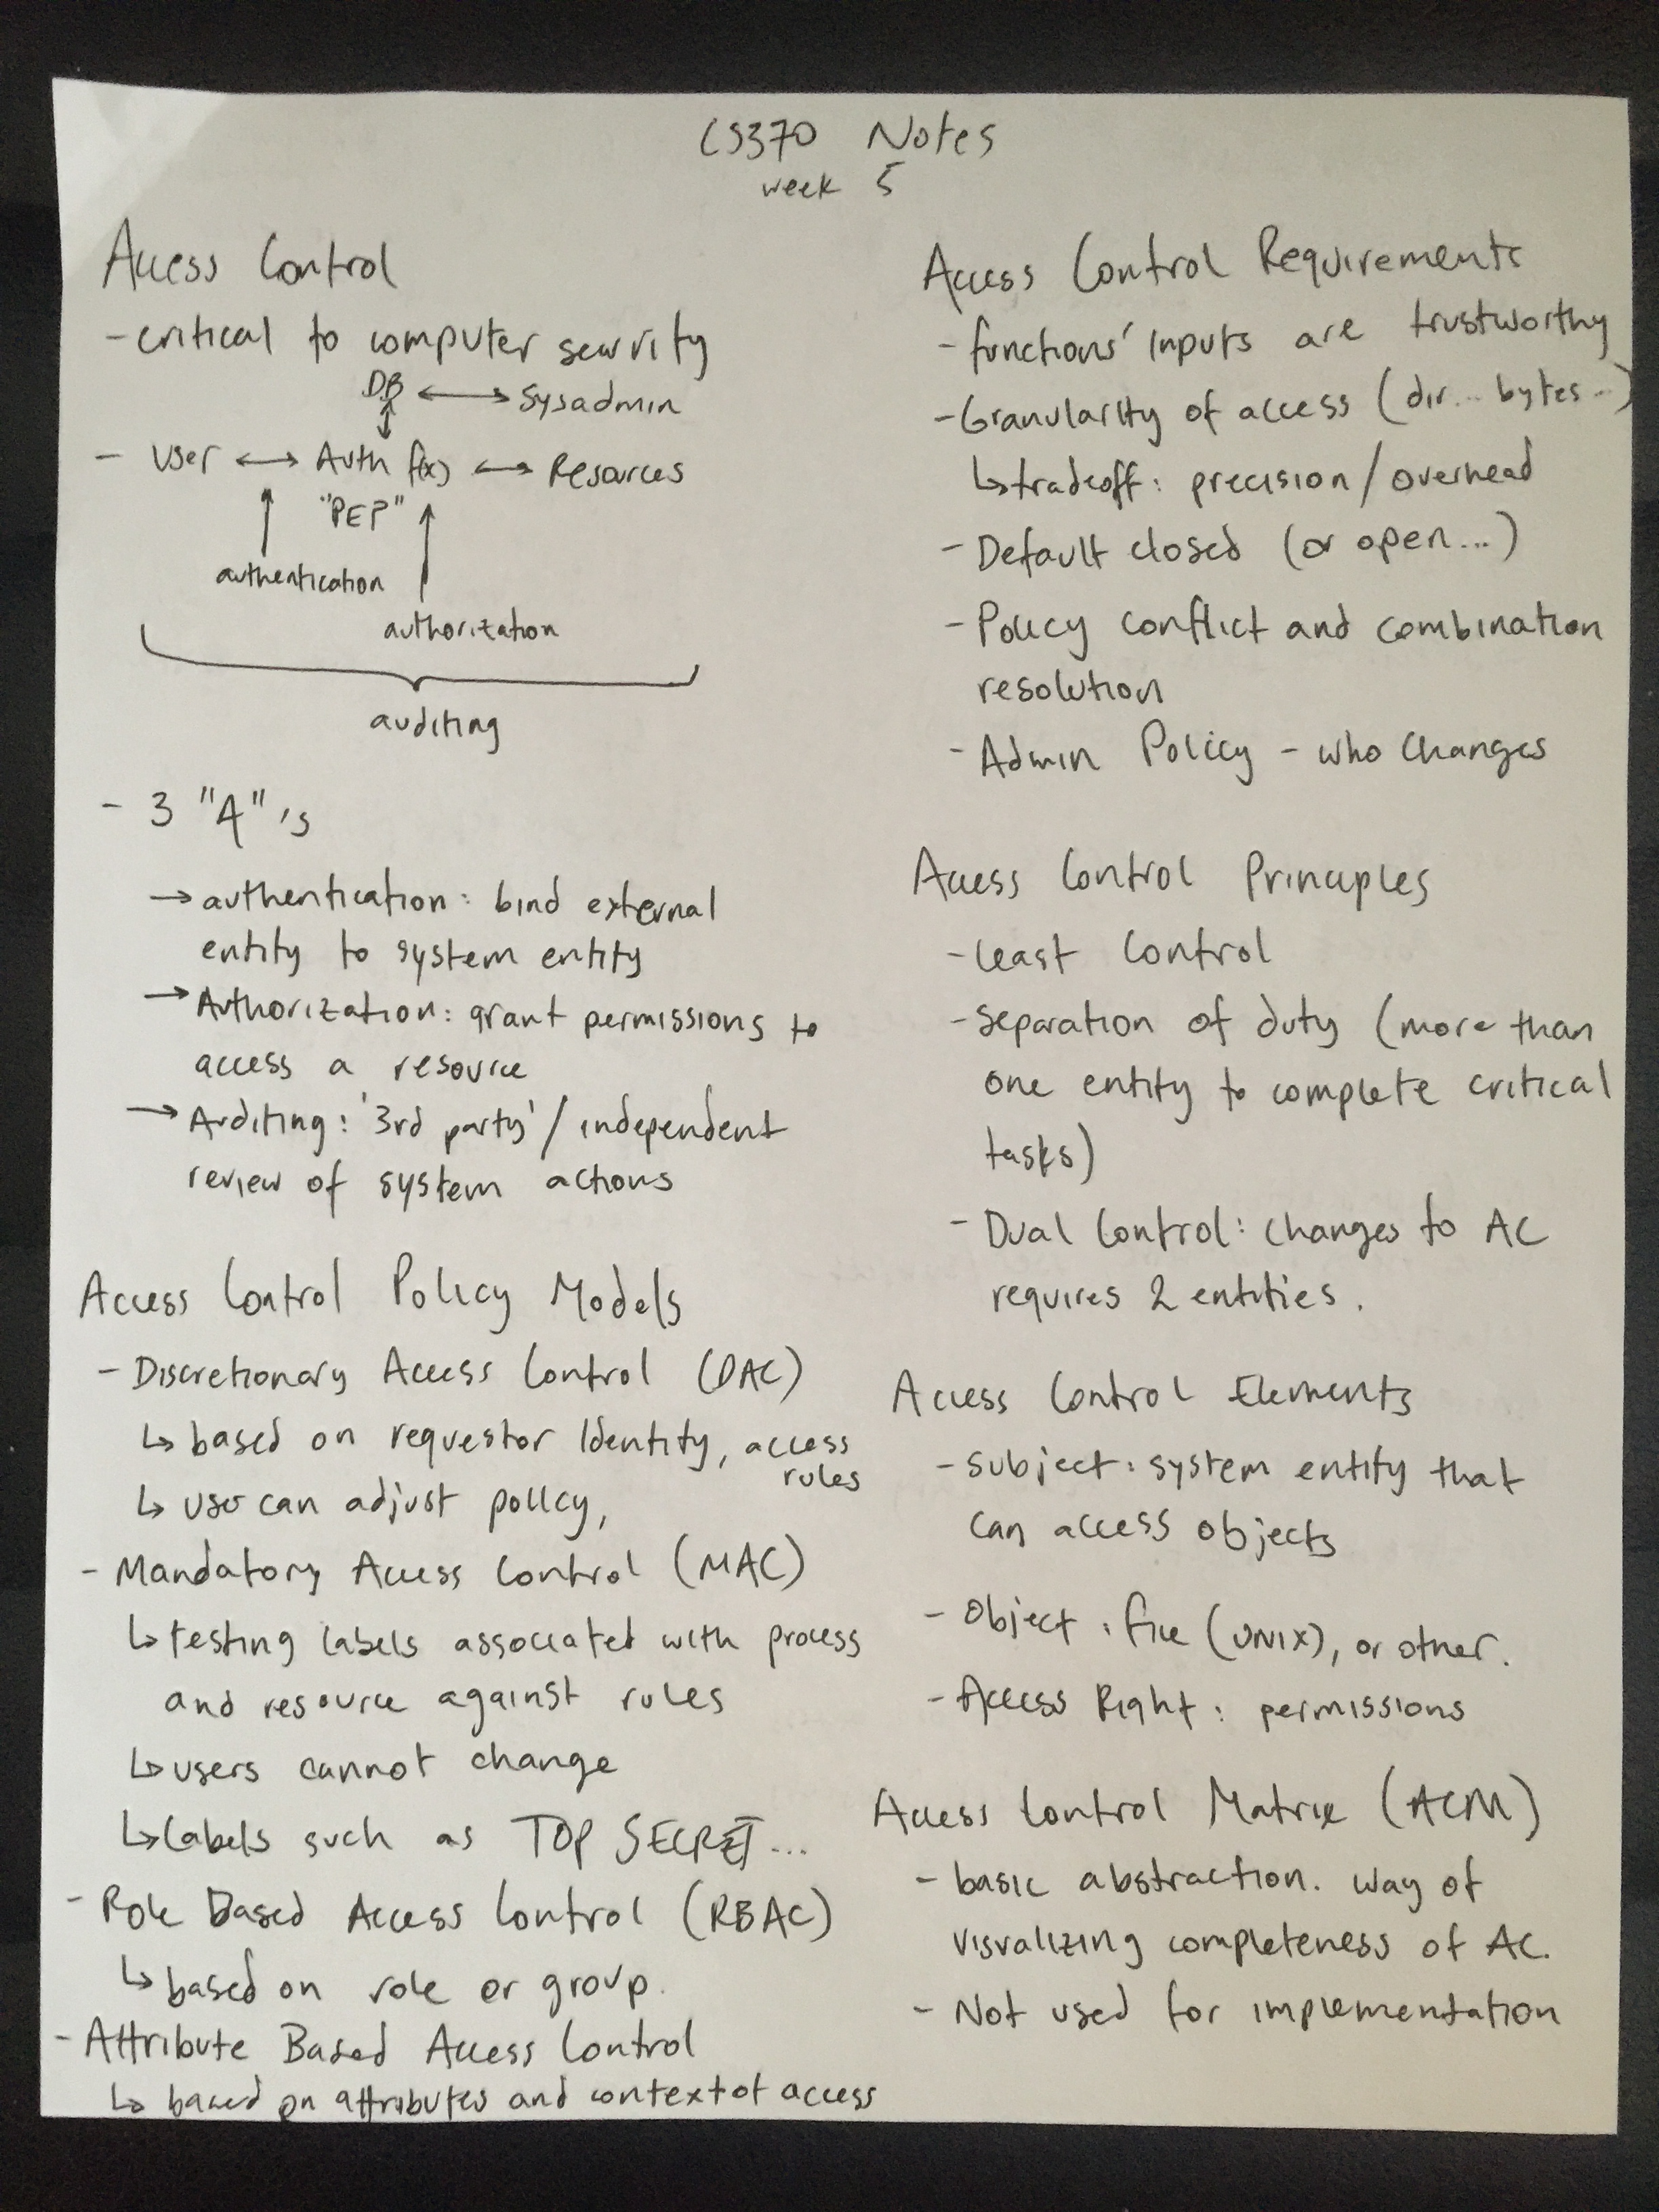 CS370 Notes
week 5
Access Control
- critical to computer security
DB ↔ sysadmin
↕
- User ↔ Auth f(x) ↔ Resources
"PEP"
authentication
authorization
auditing
- 3 "A"'s
→ authentication: bind external
entity to system entity
→ Authorization: grant permissions to
access a resource
→ Auditing: '3rd party' / independent
review of system actions
Access Control Policy Models
- Discretionary Access Control (DAC)
↳ based on requestor identity, access
rules
↳ user can adjust policy,
- Mandatory Access Control (MAC)
↳ testing labels associated with process
and resource against rules
↳ users cannot change
↳ Labels such as TOP SECRET...
- Role Based Access Control (RBAC)
↳ based on role or group.
- Attribute Based Access Control
↳ based on attributes and context of access
Access Control Requirements
- functions' inputs are trustworthy
- Granularity of access (dir... bytes...)
↳ tradeoff: precision/overhead
- Default closed (or open...)
- Policy conflict and combination
resolution
- Admin Policy - who changes
Access Control Principles
- Least Control
- Separation of duty (more than
one entity to complete critical
tasks)
- Dual Control: changes to AC
requires 2 entities.
Access Control Elements
- Subject: system entity that
can access objects
- Object: file (UNIX), or other.
- Access Right: permissions
Access Control Matrix (ACM)
- basic abstraction. way of
visualizing completeness of AC.
- Not used for implementation